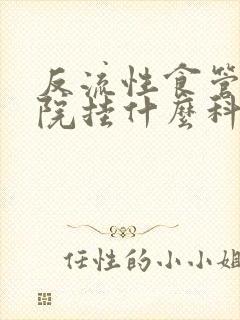 反流性食管
院挂什麼科
任性的小小姐